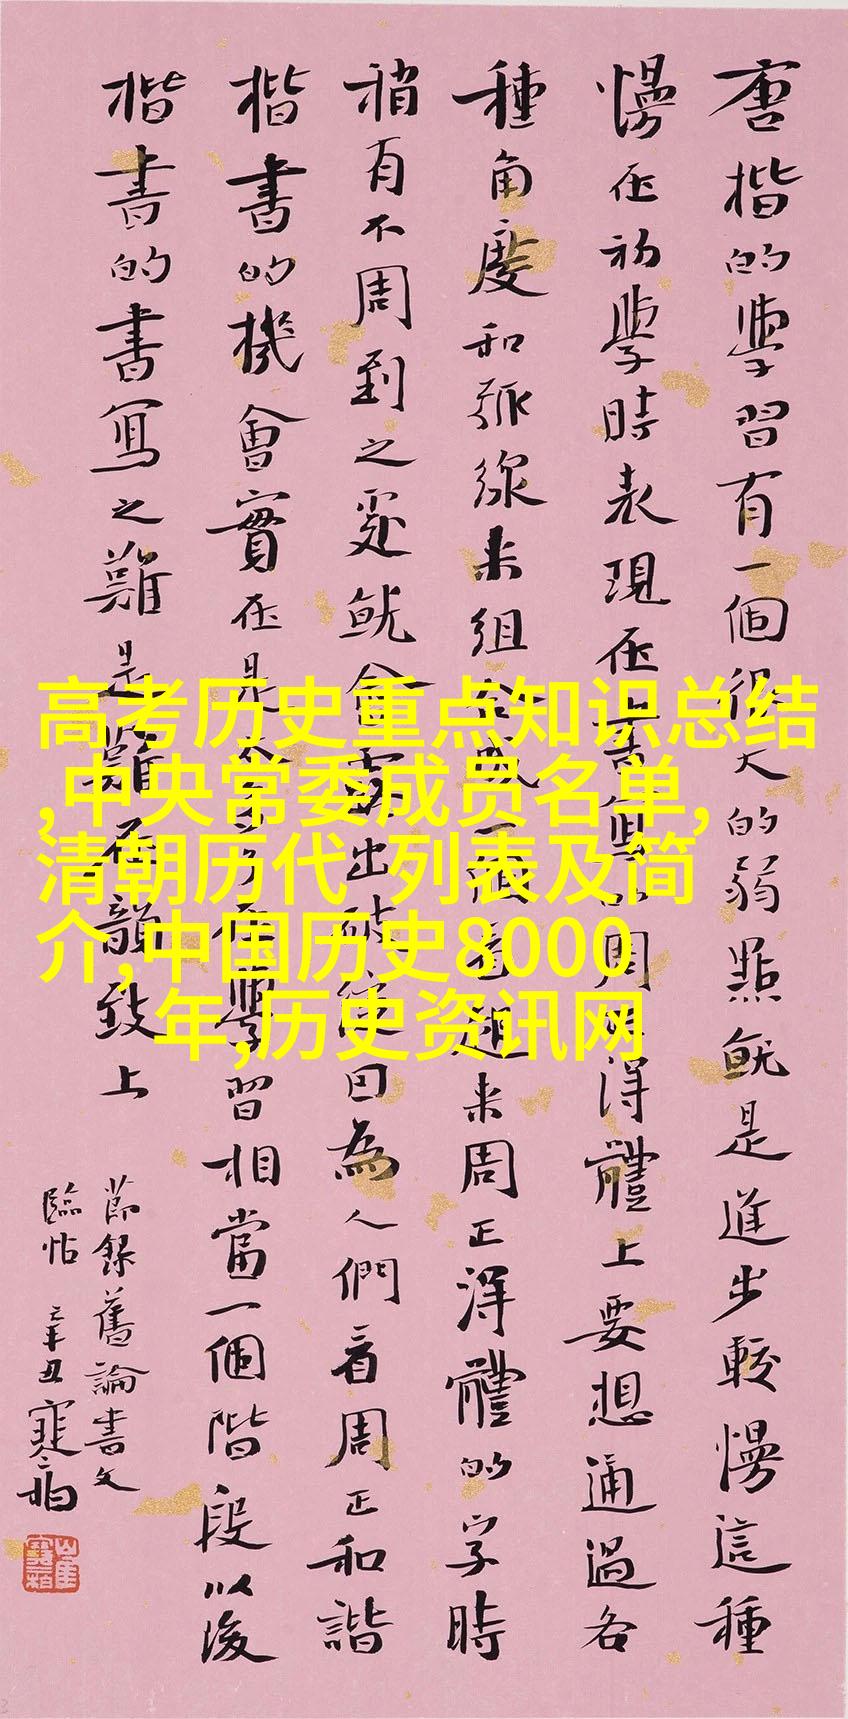 唐楷的學習有一個很大的弱點就是進步較慢這種
慢在初學時表現在書寫以周正得體上要想通過各
種角度和弧線來組合成一種看起來周正得體的字時
稍有不周到之處就會露出破綻因為人們看周正和諧
楷書的機會實在是太多了在學習相當一個階段以後
楷書的書寫之難是難在韻致上
節錄舊論書文
臨帖 辛丑 寒柏
高考历史重点知识总结
,中央常委成员名单,
清朝历代 列表及简
介,中国历史8000
年,历史资讯网